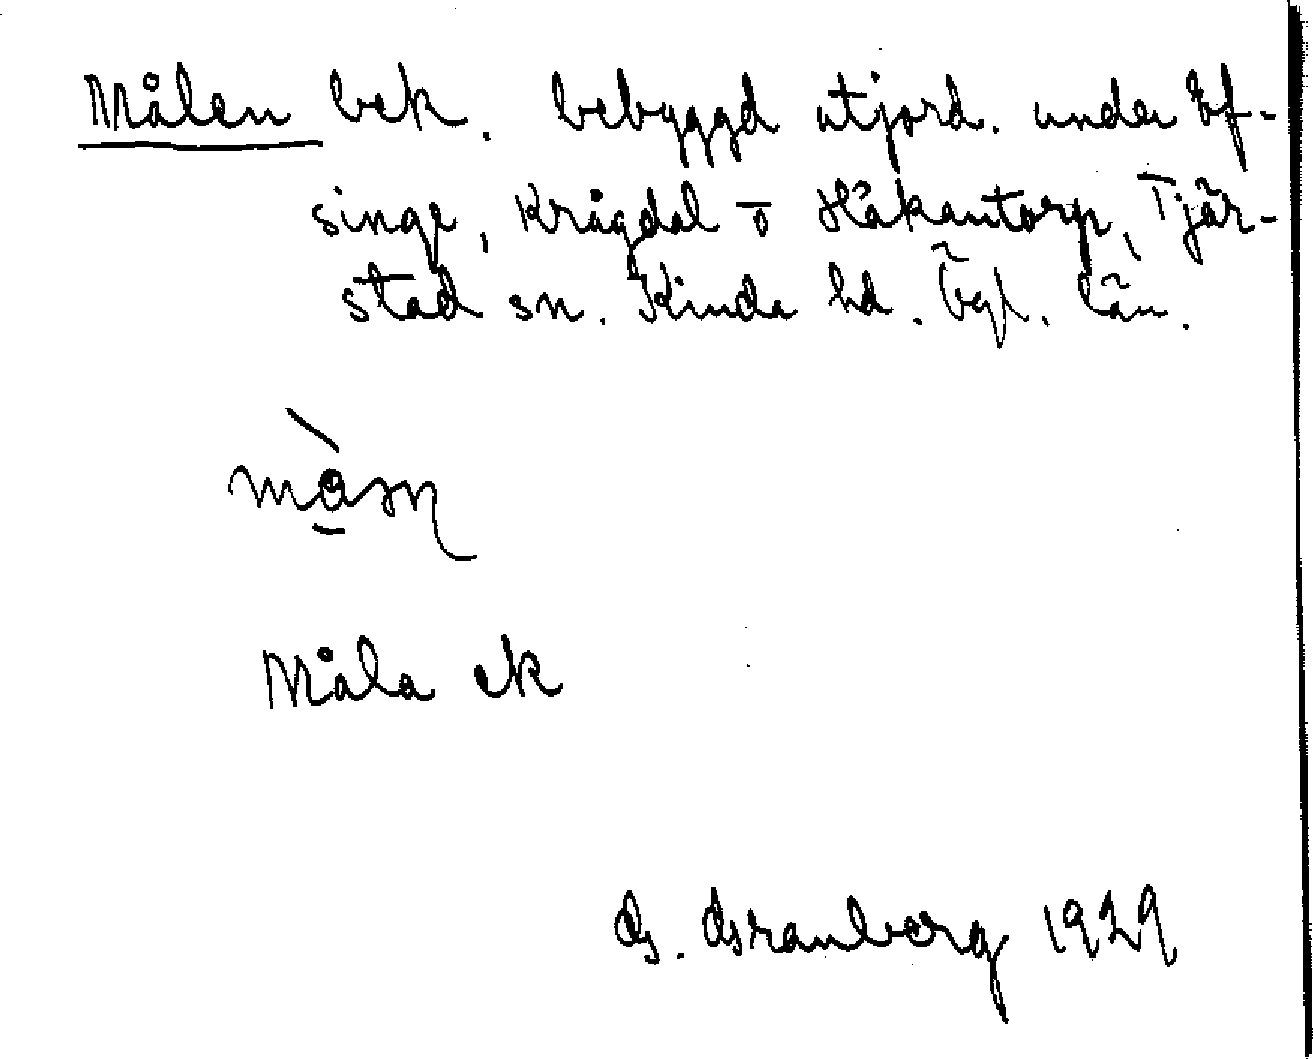 Målen bek. bebyggd utjord. under Ef-
singe, Krågdal o Håkantorp, Tjär-
stad sn. Kinda hd. Ögl. län.
Måla ek
G. Granberg 1929